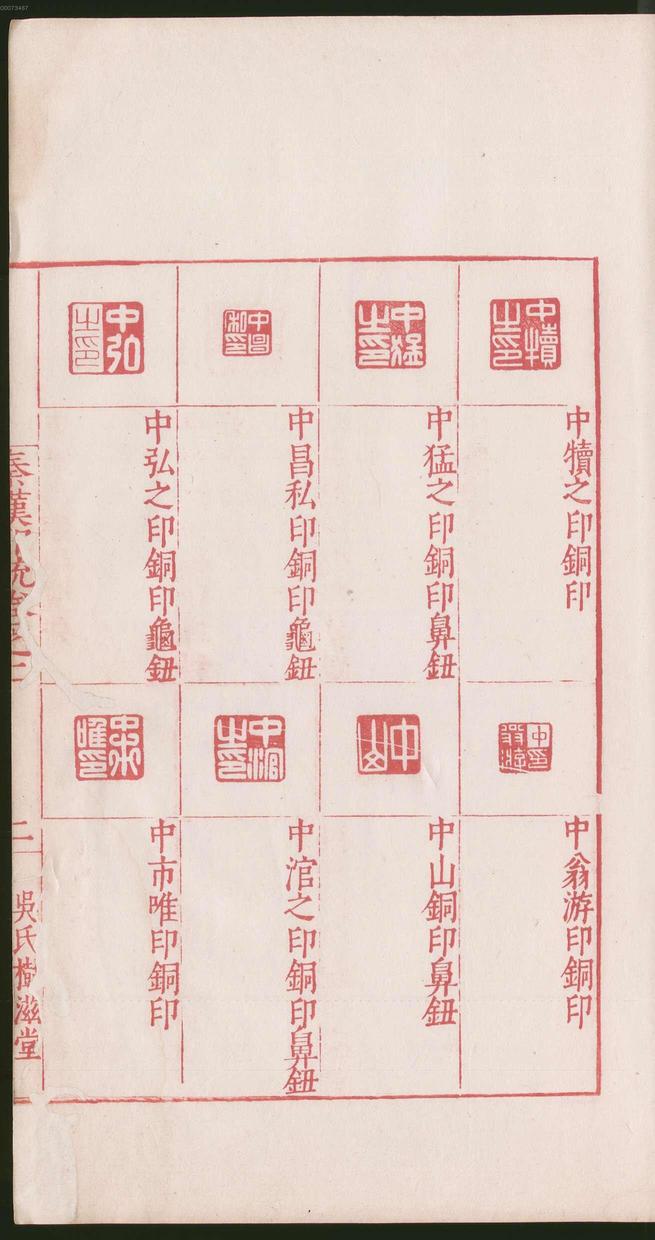 00073467
中犢之印
中犢之印銅印
中猛之印
中猛之印銅印鼻鈕
中昌私印
中昌私印銅印龜鈕
中弘之印
中弘之印銅印龜鈕
中翁游印
中翁游印銅印
中山
中山銅印鼻鈕
中涫之印
中涫之印銅印鼻鈕
中市唯印
中市唯印銅印
秦漢印統卷三
二
吳氏樹滋堂